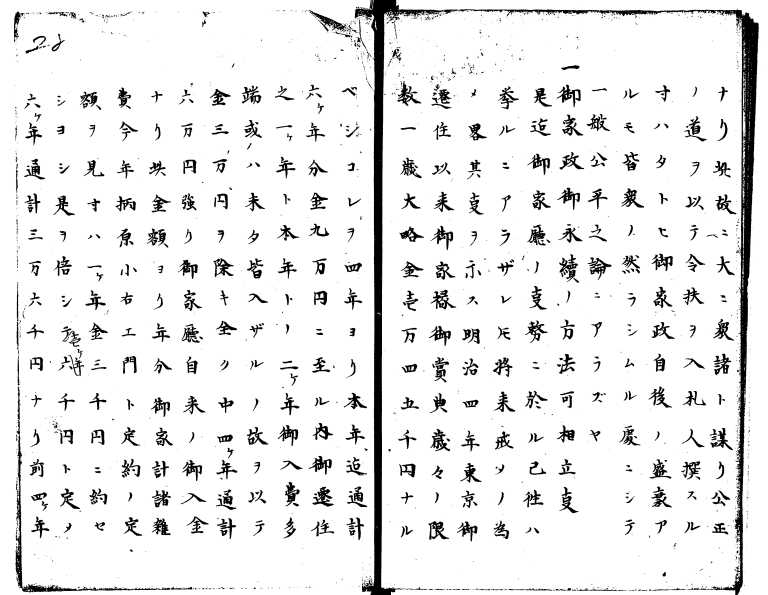 ナリ此故ニ大ニ衆諸ト謀リ公正
ノ道ヲ以テ令扶ヲ入札人撰スル
寸ハタトヒ御家政自後ノ盛豪ア
ルモ皆衆ノ然ラシムル慶ニシテ
一般公平之論ニアラズヤ
一御家政御永續ノ方法可相立㕝
是迄御家廳ノ㕝務ニ於ル已徃ハ
挙ルニアラザレ𪜈将来戒メノ為
メ畧其㕝ヲ示ス明治四年東京御
遷住以来御家禄御賞典歳々ノ限
数一歳大略金壱万四五千円ナル
ベシコレヲ四年ヨリ本年迄通計
六ヶ年分金九万円ニ至ル内御遷住
之一ヶ年ト本年トノ二ヶ年御入費多
端或ハ未タ皆入ザルノ故ヲ以テ
金三万円ヲ除キ全ク中四ヶ年通計
六万円強リ御家廳自来ノ御入金
ナリ此金額ヨリ年分御家計諸雑
費今年柄原小右エ門ト定約ノ定
額ヲ見寸ハ一ヶ年金三千円ニ約セ
シヨシ是ヲ倍シテ壱ヶ年六千円ト定メ
六ヶ年通計三万六千円ナリ前四ヶ年